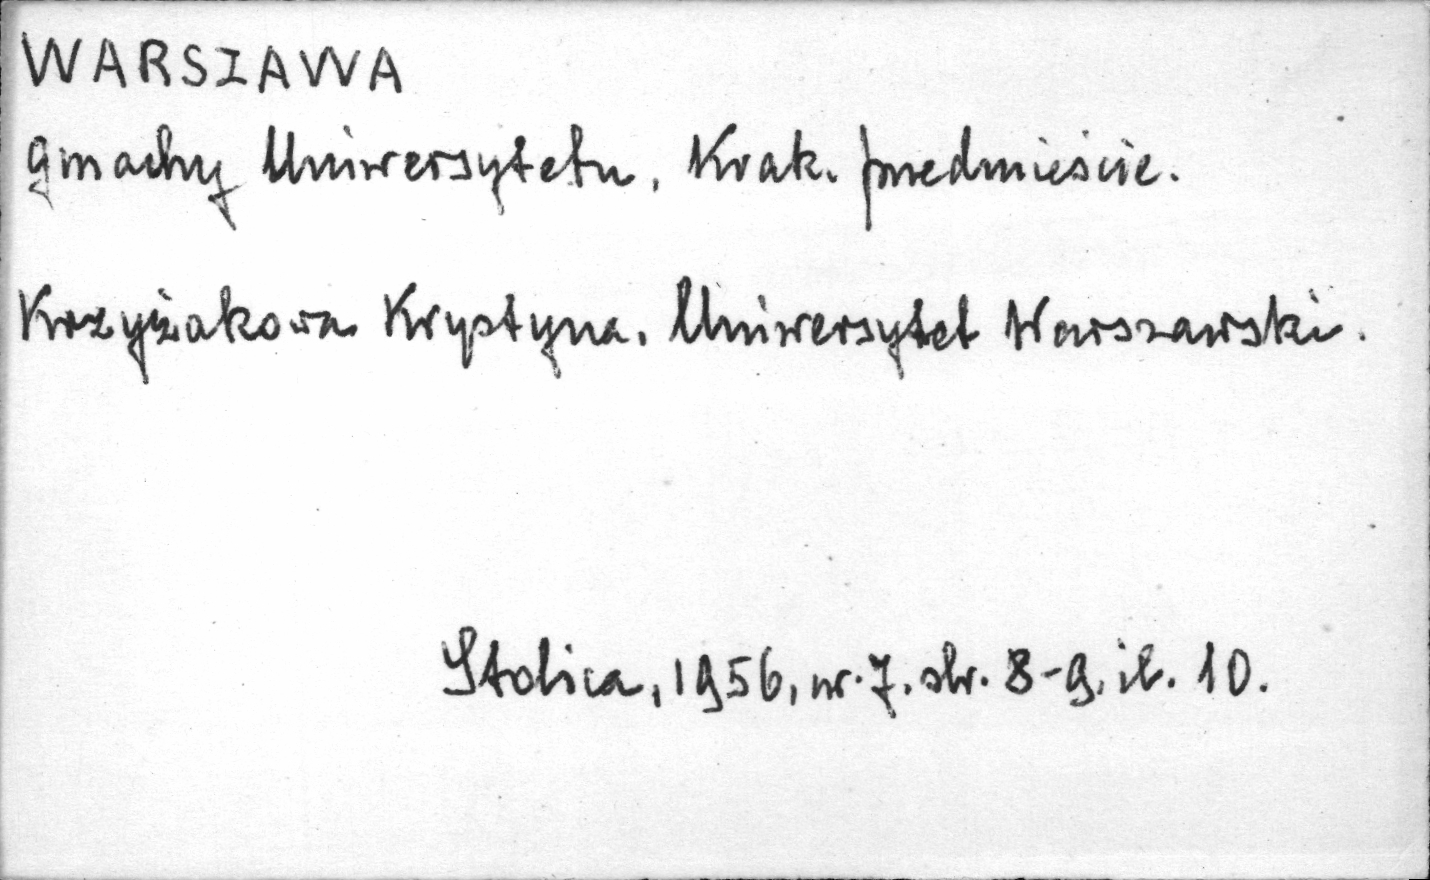 WARSZAWA
gmachy Uniwersytetu, Krak. przedmieście.
Krzyżakowa Krystyna. Uniwersytet Warszawski.
Stolica, 1956, nr. 7. str. 8-9, il. 10.